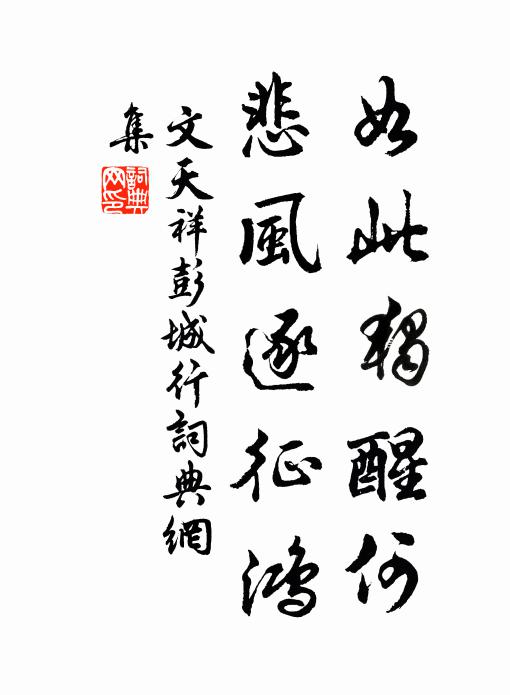 如此獨醒何
悲風逐征鴻
文天祥彭城行詞典網
集
詞典
网印